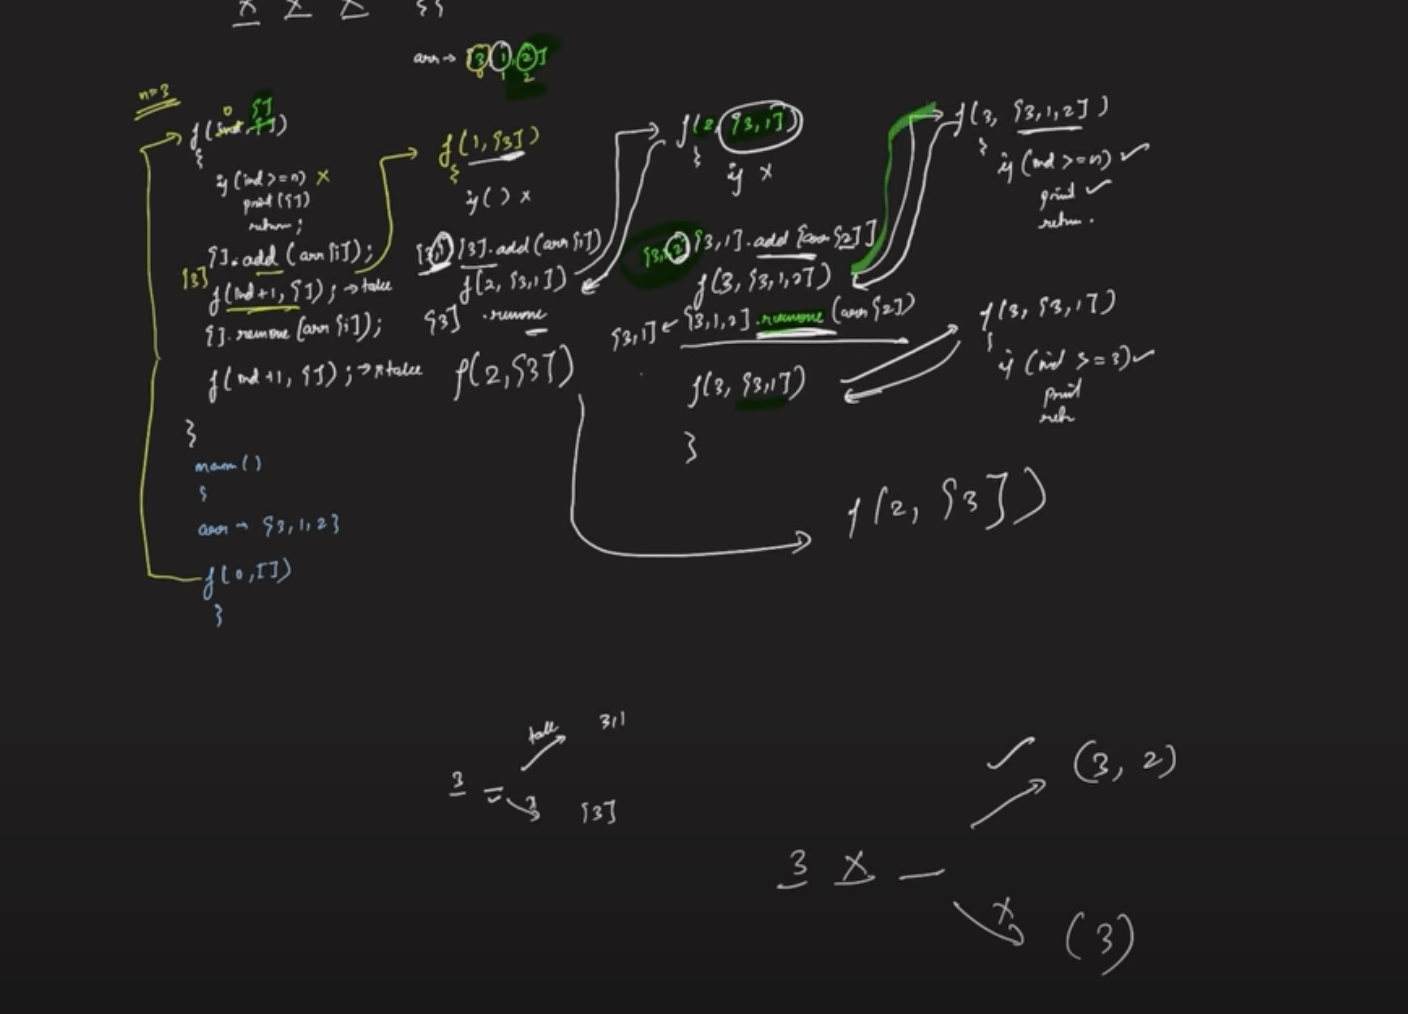 x x x {}
arr → [3, 1, 2]
0 1 2
n=3
f(0, [])
{
if (ind >= n) x
print([])
return;
[].add(arr[i]);
[3]
f(ind+1, []); → take
[].remove(arr[i]);
f(ind+1, []); → x take
}
main()
{
arr → {3,1,2}
f(0, [])
}
f(1, [3])
{
if() x
[3,1] [3].add(arr[i])
f(2, [3,1])
[3] .remove
f(2, [3])
f(2, [3,1])
{
if x
[3,1,2] [3,1].add[arr[2]]
f(3, [3,1,2])
[3,1] ← [3,1,2].remove(arr[2])
f(3, [3,1])
}
f(3, [3,1,2])
{
if (ind >= n) ✓
print ✓
return.
f(3, [3,1])
{
if (ind >= 3) ✓
print
retn
f(2, [3])
3 _
take 3,1
x [3]
3 X _
✓ (3, 2)
x (3)